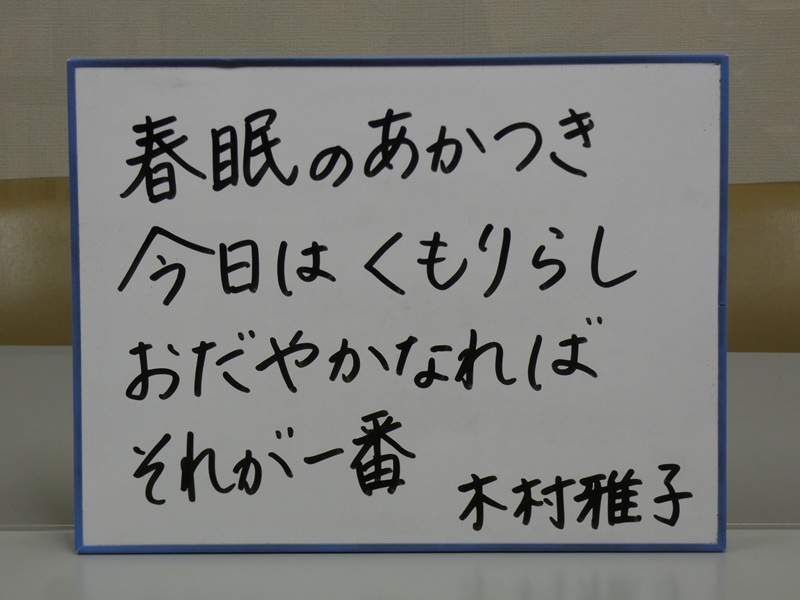 春眠のあかつき
今日はくもりらし
おだやかなれば
それが一番
木村雅子